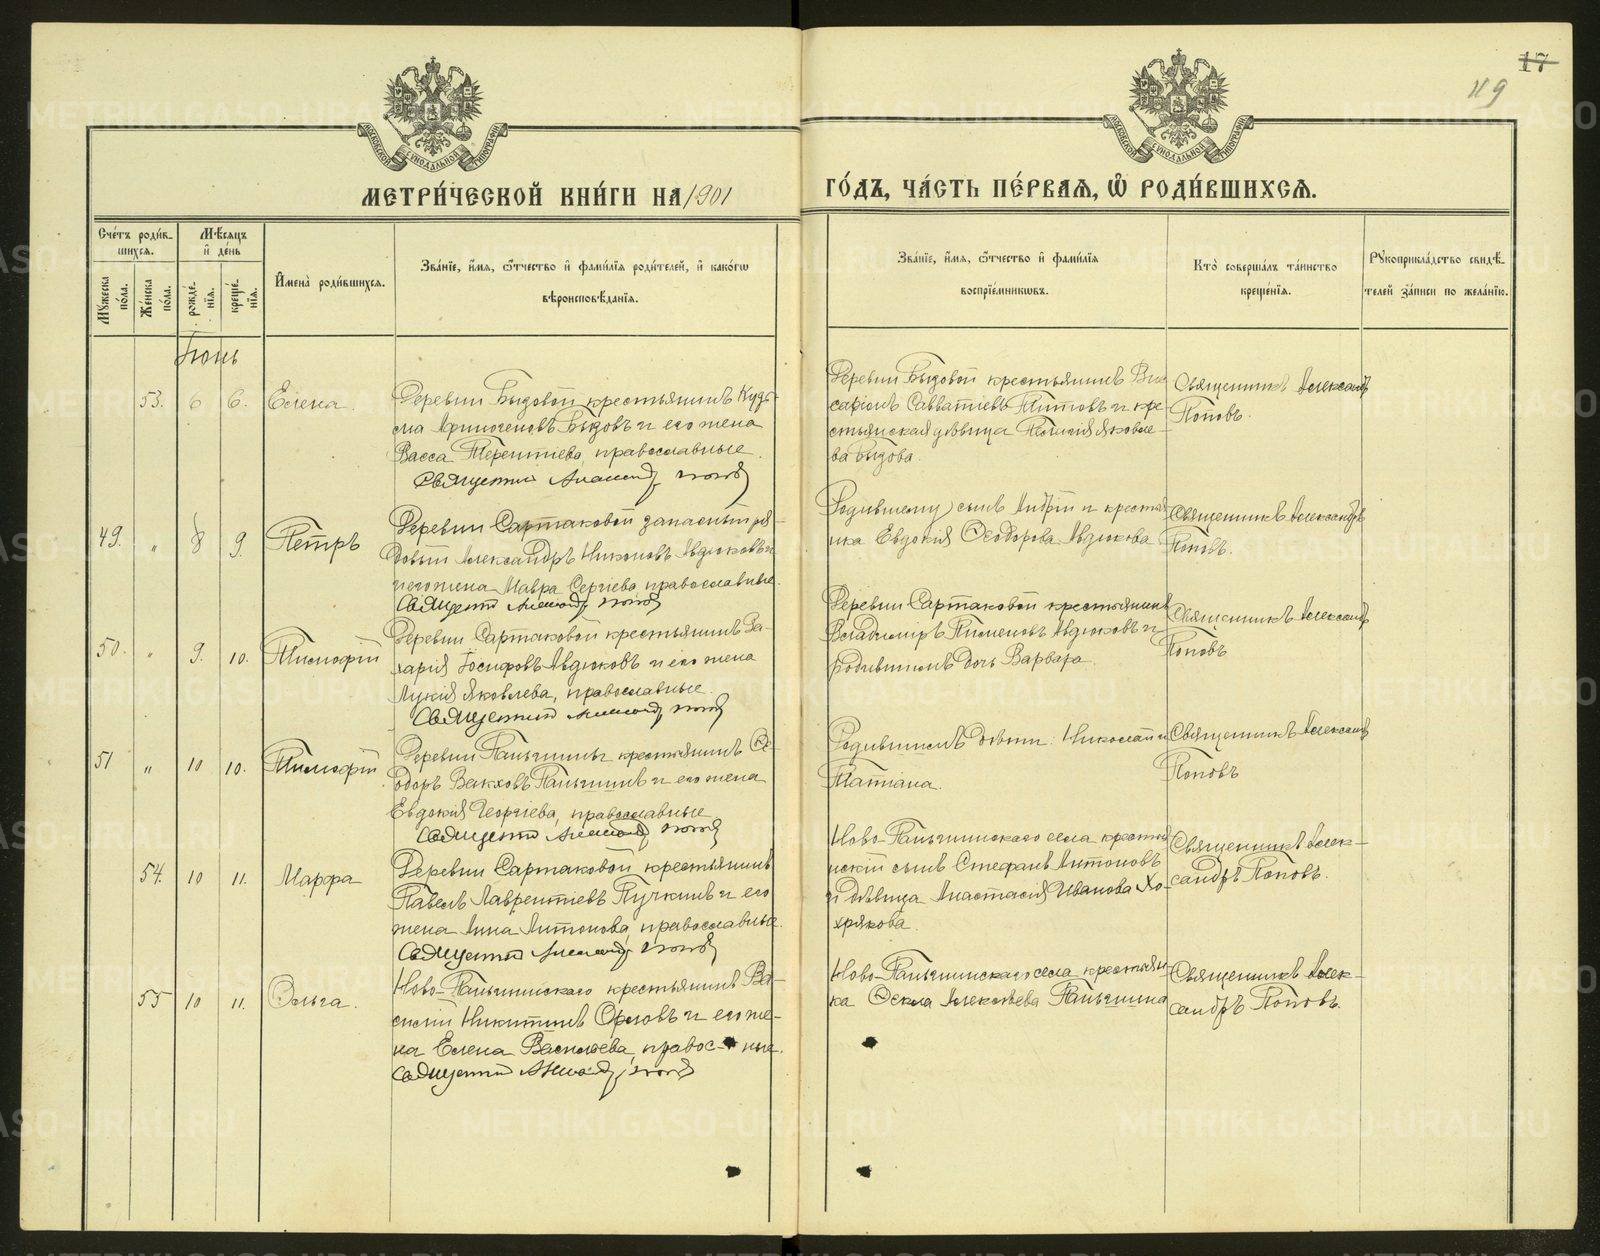 17
49
МЕТРИ́ЧЕСКОЙ КНИ́ГИ НА 1901
ГО́ДЪ, ЧА́СТЬ ПЕ́РВАЯ, Ѿ РОДИ́ВШИХСЯ.
Сче́тъ роди́в-
шихся.
Мѣ́сяцъ
и҆ де́нь
Мꙋ́жеска
по́ла.
Же́нска
по́ла.
рожде́-
нїя.
креще́-
нїя.
И҆мена̀ роди́вшихся.
Зва́нїе, и҆́мя, ѻ҆́тчество и҆ фами́лїя роди́телей, и҆ како́гѡ
вѣроисповѣ́данїя.
Зва́нїе, и҆́мя, ѻ҆́тчество и҆ фами́лїя
воспрїе́мниковъ.
Кто̀ соверша́лъ та́инство
креще́нїя.
Рꙋкоприкла́дство свидѣ́-
телей за́писи по жела́нїю.
Іюнь
53. 6 6. Елена.
Деревни Быдовой крестьянинъ Кузь-
ма Афиногеновъ Быдовъ и его жена
Васса Терентіева, православные.
Священникъ Александръ Поповъ
Деревни Быдовой крестьянинъ Вис-
саріонъ Савватіевъ Титовъ и кре-
стьянская дѣвица Пелагія Яковле-
ва Быдова.
Священникъ Александръ
Поповъ.
49. „ 8 9. Петръ
Деревни Сартаковой запасный ря-
довый Александръ Никоновъ Авдюковъ
и его жена Мавра Сергіева, православные.
Священникъ Александръ Поповъ
Родившему сынъ Андрей и крестьян-
ка Евдокія Ѳеодорова Авдюкова
Священникъ Александръ
Поповъ.
50. „ 9. 10. Тимофій
Деревни Сартаковой крестьянинъ За-
харія Іосифовъ Авдюковъ и его жена
Лукія Яковлева, православные.
Священникъ Александръ Поповъ
Деревни Сартаковой крестьянинъ
Владиміръ Пименовъ Авдюковъ и
родившимъ дочь Варвара.
Священникъ Александръ
Поповъ
51 „ 10 10. Тимофій
Деревни Паньшины крестьянинъ Ѳе-
одоръ Вакховъ Паньшинъ и его жена
Евдокія Георгіева, православные
Священникъ Александръ Поповъ
Родившимъ дѣти: Николай и
Татіана.
Священникъ Александръ
Поповъ
54. 10 11. Марфа
Деревни Сартаковой крестьянинъ
Павелъ Лаврентіевъ Пучкинъ и его
жена Анна Антонова, православные.
Священникъ Александръ Поповъ
Ново-Паньшинскаго села крестья-
нскій сынъ Стефанъ Антоновъ
и дѣвица Анастасія Иванова Хо-
хрякова.
Священникъ Алек-
сандръ Поповъ.
55 10 11. Ольга.
Ново-Паньшинскаго крестьянинъ Ва-
силій Никитинъ Орловъ и его же-
на Елена Васильева, православные.
Священникъ Александръ Поповъ
Ново-Паньшинскаго села крестьян-
ка Ѳекла Алексѣева Паньшина
Священникъ Алек-
сандръ Поповъ.